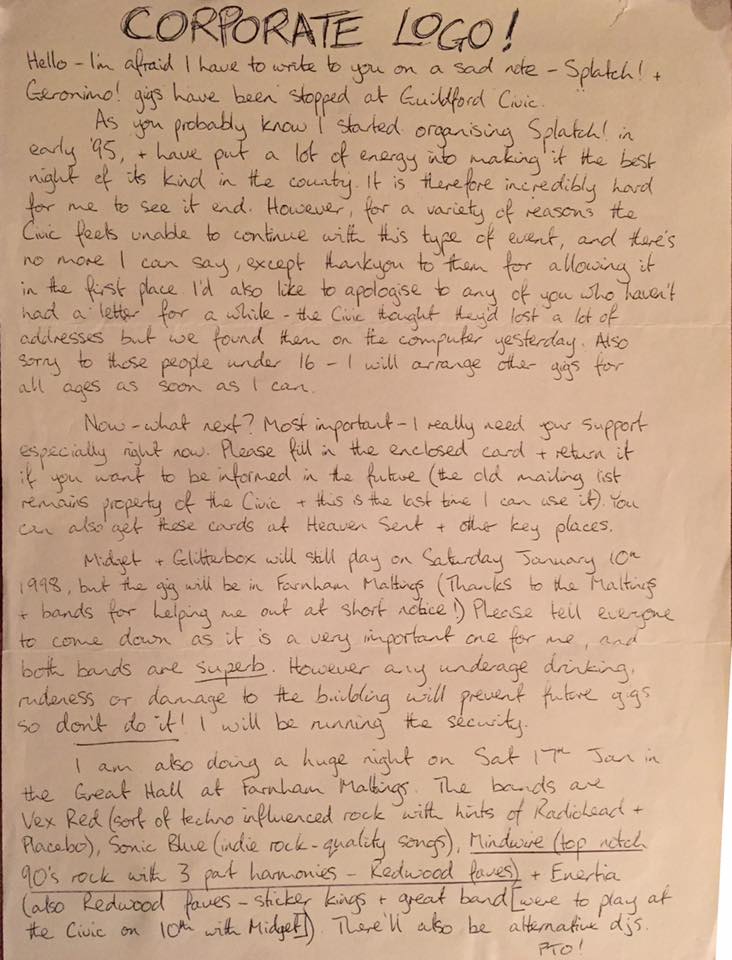 CORPORATE LOGO!
Hello - I'm afraid I have to write to you on a sad note - Splatch! +
Geronimo! gigs have been stopped at Guildford Civic.
As you probably know I started organising Splatch! in
early '95, + have put a lot of energy into making it the best
night of its kind in the country. It is therefore incredibly hard
for me to see it end. However, for a variety of reasons the
Civic feels unable to continue with this type of event, and there's
no more I can say, except thankyou to them for allowing it
in the first place. I'd also like to apologise to any of you who haven't
had a letter for a while - the Civic thought they'd lost a lot of
addresses but we found them on the computer yesterday. Also
sorry to those people under 16 - I will arrange other gigs for
all ages as soon as I can.
Now - what next? Most important - I really need your support
especially right now. Please fill in the enclosed card + return it
if you want to be informed in the future (the old mailing list
remains property of the Civic + this is the last time I can use it). You
can also get these cards at Heaven Sent + other key places.
Midget + Glitterbox will still play on Saturday January 10th
1998, but the gig will be in Farnham Maltings (Thanks to the Maltings
+ bands for helping me out at short notice!) Please tell everyone
to come down as it is a very important one for me, and
both bands are superb. However any underage drinking,
rudeness or damage to the building will prevent future gigs
so don't do it! I will be running the security.
I am also doing a huge night on Sat 17th Jan in
the Great Hall at Farnham Maltings. The bands are
Vex Red (sort of techno influenced rock with hints of Radiohead +
Placebo), Sonic Blue (indie rock - quality songs), Mindwire (top notch
90's rock with 3 part harmonies - Redwood faves) + Enertia
(also Redwood faves - sticker kings + great band [were to play at
the Civic on 10th with Midget]). There'll also be alternative djs.
PTO!